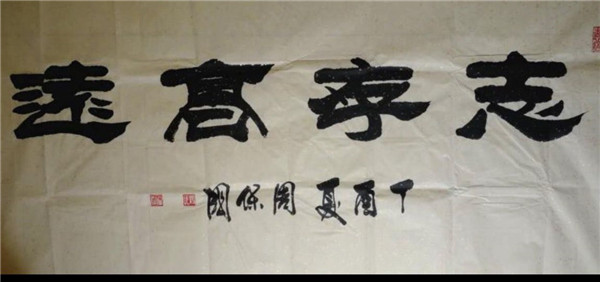 志存高遠
丁酉夏周保國